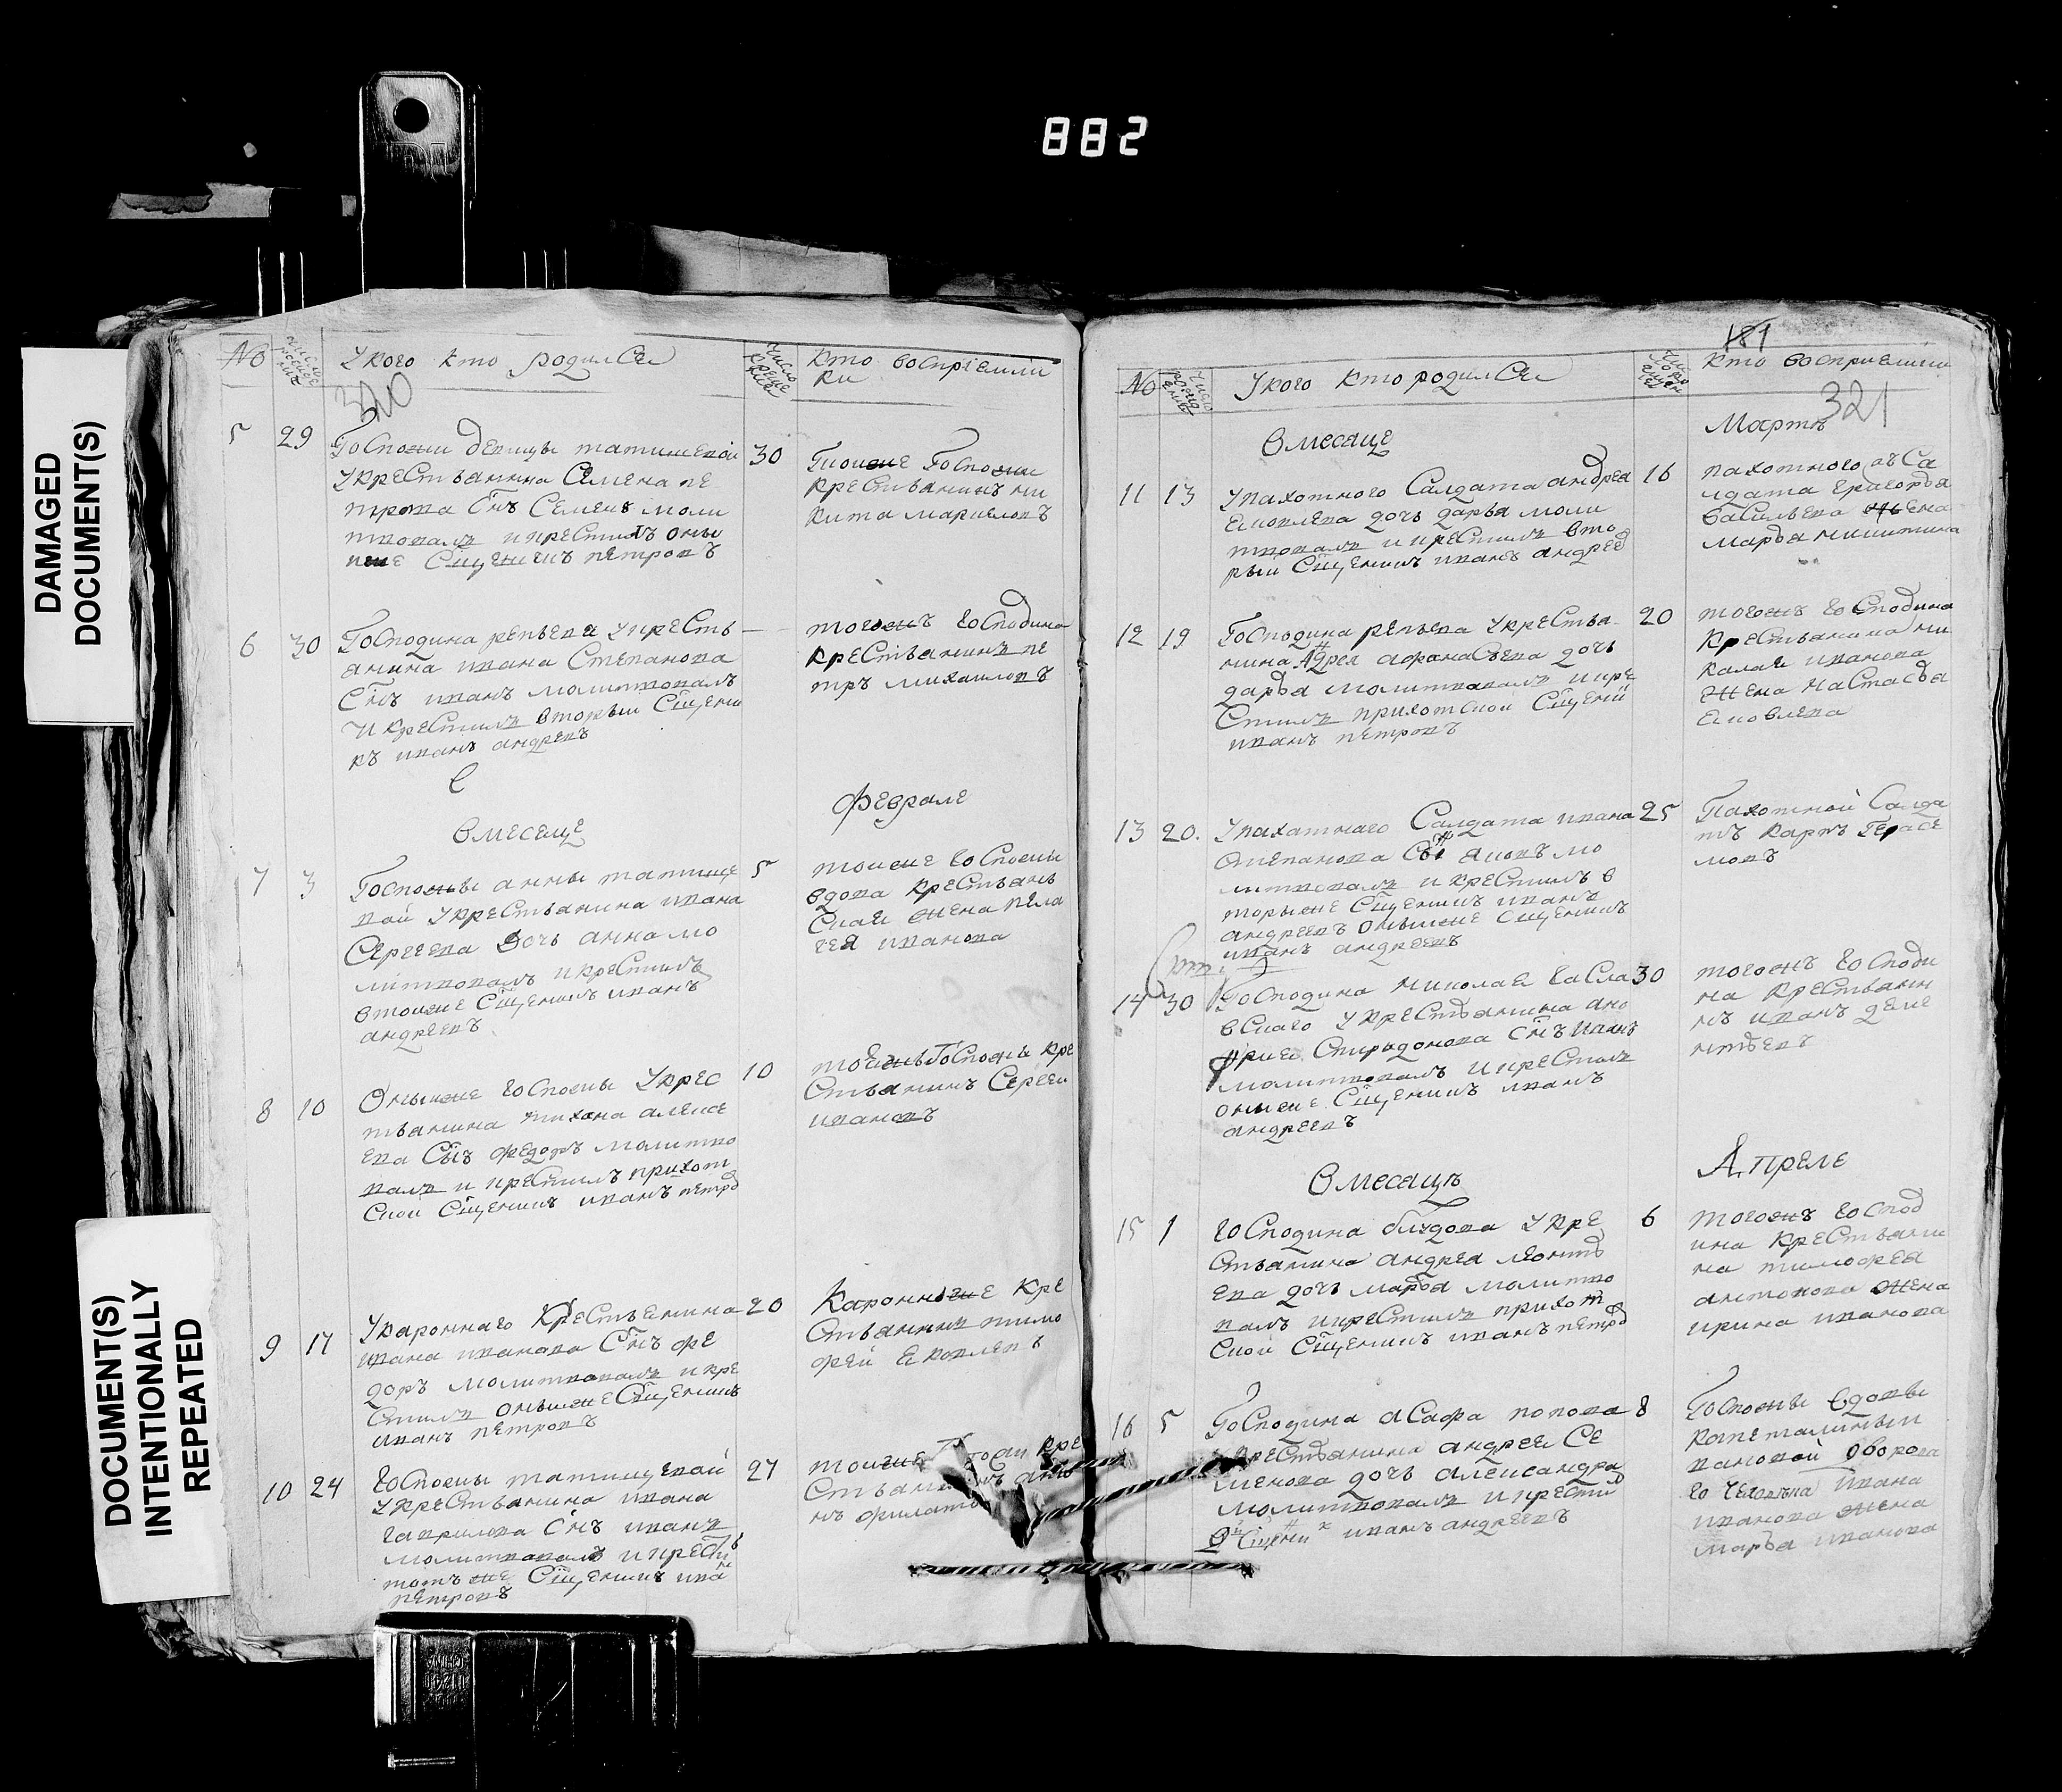 882
DAMAGED
DOCUMENT(S)
DOCUMENT(S)
INTENTIONALLY
REPEATED
№ число рожденія У кого кто родился число крещенія кто воспріемни
ки
320
5 29 Госпожи девицы татищевой 30
у крестьянина Семена пе
трова Снъ Семенъ моли
твовалъ и крестилъ оны
й же Сщенникъ петровъ
Тоиже Госпожи
крестьянинъ ни
кита маркеловъ
6 30 Господина репьева у кресть —
янина ивана Степанова
Снъ иванъ молитвовалъ
и крестилъ вторыи Сщенни
къ иванъ андреевъ
тогожъ господина
крестьянинъ пе
тръ михаиловъ
Вмесеце феврале
7 3 Госпожы анны татище 5
вой у крестьянина ивана
Сергеева дочь анна мо
литвовалъ и крестилъ
втоиже Сщенникъ иванъ
андреевъ
тоиже госпожи
вдова крестьянь
ская жена пела
гея иванова
8 10 Оныиже госпожы у крес 10
тьянина тихона алексе
ева Снъ федоръ молитво
валъ и крестилъ приход
ской Сщенникъ иванъ петро
тоежъ Госпожы кре
стьянинъ Сергеи
ивановъ
9 17 У кароннаго крестьенина 20
ивана иванова Снъ фе
доръ молитвовалъ и кре
стилъ оныиже Сщенникъ
иванъ петровъ
Каронные кре
стьянинъ тимо
фей Яковлевъ
10 24 Госпожы татищевой 27
у крестьянина ивана
гаврилова Снъ иванъ
молитвовалъ и крестилъ
тотъ же Сщенникъ ива
петровъ
тоиже кре
стьян
нъ филат
181
321
№ число рожденія У кого кто родился число крещенія кто воспріемни
Вмесяце Марте
11 13 У пахотного Салдата андрея 16
Яковлева дочь дарья моли
твовалъ и крестилъ вто
рыи Сщенникъ иванъ андрее
пахотного Са
лдата Григорья
Васильева жена
марья никитина
12 19 Господина репьева у крестья 20
нина Адрея афонасьева дочь
дарья молитвовалъ и кре
стилъ прихотской Сщенникъ
иванъ петровъ
тогожъ господина
крестьянина ни
калая иванова
жена настасья
Яковлева
13 20. У пахатнаго Салдата ивана 25
Степанова Снъ яковъ мо
литвовалъ и крестилъ в
торыиже Сщенникъ иванъ
андреевъ оныиже Сщенникъ
иванъ андреевъ
Пахотной Салда
тъ карпъ Гарасе
мовъ
14 30 Господина николая Васла 30
вскаго у крестьянина анд
рия Спиридонова Снъ иванъ
молитвовалъ и крестилъ
оныиже Сщенникъ иванъ
андреевъ
тогожъ господи
на крестьяни
нъ иванъ деме
нтьевъ
Вмесяцъ Апреле
15 1 Господина блудова у кре 6
стьянина андрея леонть
ева дочь марья молитво
валъ и крестилъ приход
ской Сщенникъ иванъ петро
тогожъ господ
ина крестьяни
на тимофея
антонова жена
ирина иванова
16 5 Господина асафа попова 8
крестьянина андрея Се
менова дочь александра
молитвовалъ и крести
Сщенникъ иванъ андреевъ
Госпожы вдовы
дворова
го человека ивана
иванова жена
марья иванова